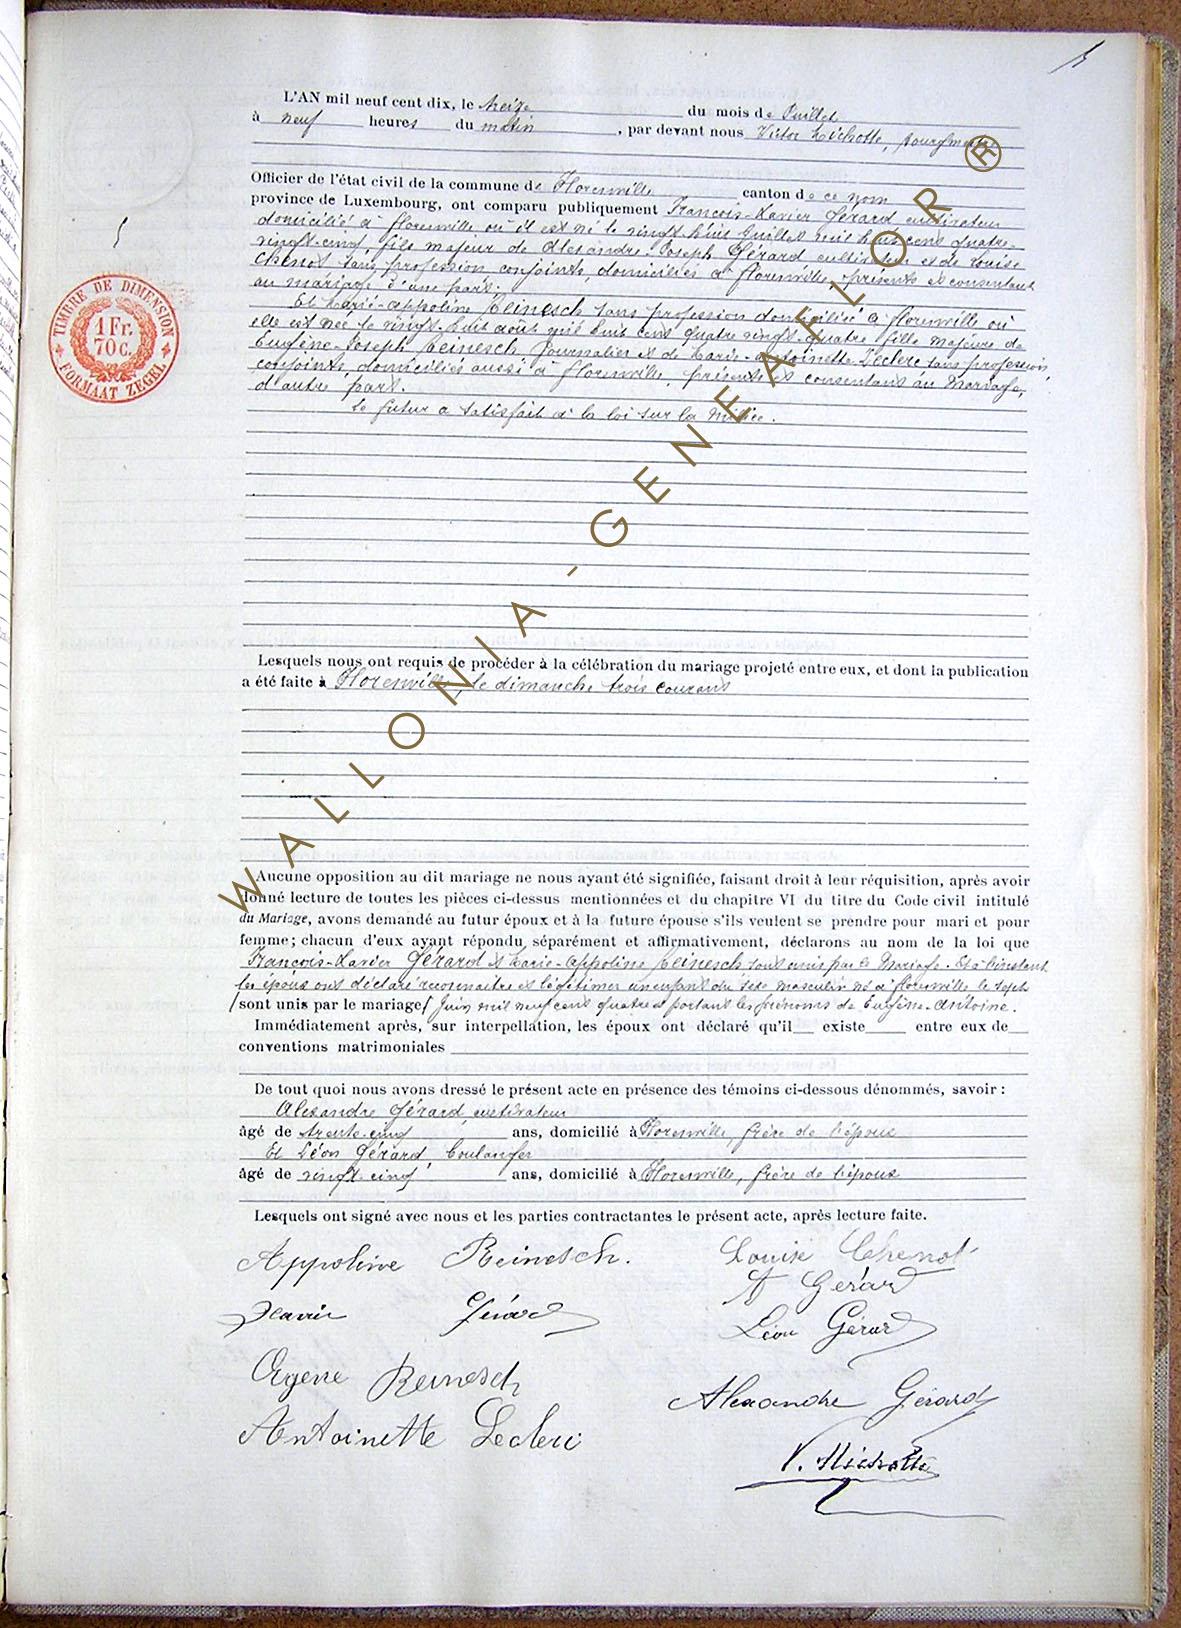 5
L'AN mil neuf cent dix, le treize du mois de Juillet
à neuf heures du matin, par devant nous Victor Michotte, bourgmestre
Officier de l'état civil de la commune de Florenville canton de ce nom
province de Luxembourg, ont comparu publiquement François-Xavier Gérard cultivateur
domicilié à Florenville où il est né le vingt-huit Juillet mil huit cent quatre-
vingt-cinq, fils majeur de Alexandre-Joseph Gérard cultivateur et de Louise
Chenot sans profession conjoints, domiciliés à Florenville, présents et consentant
au mariage d'une part.
Et Marie-Appoline Reinesch sans profession domiciliée à Florenville où
elle est née le vingt-huit août mil huit cent quatre vingt-quatre fille majeure de
Eugène-Joseph Reinesch Journalier et de Marie-Antoinette Leclerc sans profession,
conjoints, domiciliés aussi à Florenville, présents et consentant au Mariage,
d'autre part.
Le futur a satisfait à la loi sur la Milice.
TIMBRE DE DIMENSION
1 Fr.
70 c.
FORMAAT ZEGEL
Lesquels nous ont requis de procéder à la célébration du mariage projeté entre eux, et dont la publication
a été faite à Florenville, le dimanche trois courant
Aucune opposition au dit mariage ne nous ayant été signifiée, faisant droit à leur réquisition, après avoir
donné lecture de toutes les pièces ci-dessus mentionnées et du chapitre VI du titre du Code civil intitulé
du Mariage, avons demandé au futur époux et à la future épouse s'ils veulent se prendre pour mari et pour
femme; chacun d'eux ayant répondu séparément et affirmativement, déclarons au nom de la loi que
François-Xavier Gérard et Marie-Appoline Reinesch sont unis par le Mariage. Et à l'instant
les époux ont déclaré reconnaître et légitimer un enfant du sexe masculin né à Florenville le sept
sont unis par le mariage Juin mil neuf cent quatre et portant les prénoms de Eugène-Antoine.
Immédiatement après, sur interpellation, les époux ont déclaré qu'il existe entre eux de
conventions matrimoniales
De tout quoi nous avons dressé le présent acte en présence des témoins ci-dessous dénommés, savoir :
Alexandre Gérard, cultivateur
âgé de trente-cinq ans, domicilié à Florenville, frère de l'époux
Et Léon Gérard boulanger
âgé de vingt-cinq ans, domicilié à Florenville, frère de l'époux
Lesquels ont signé avec nous et les parties contractantes le présent acte, après lecture faite.
Appoline Reinesch. Louise Chenot
A Gérard
Xavier Gérard
Léon Gérard
Eugene Reinesch
Alexandre Gérard
Antoinette Leclerc
V. Michotte
WALLONIA-GENEALOR ®